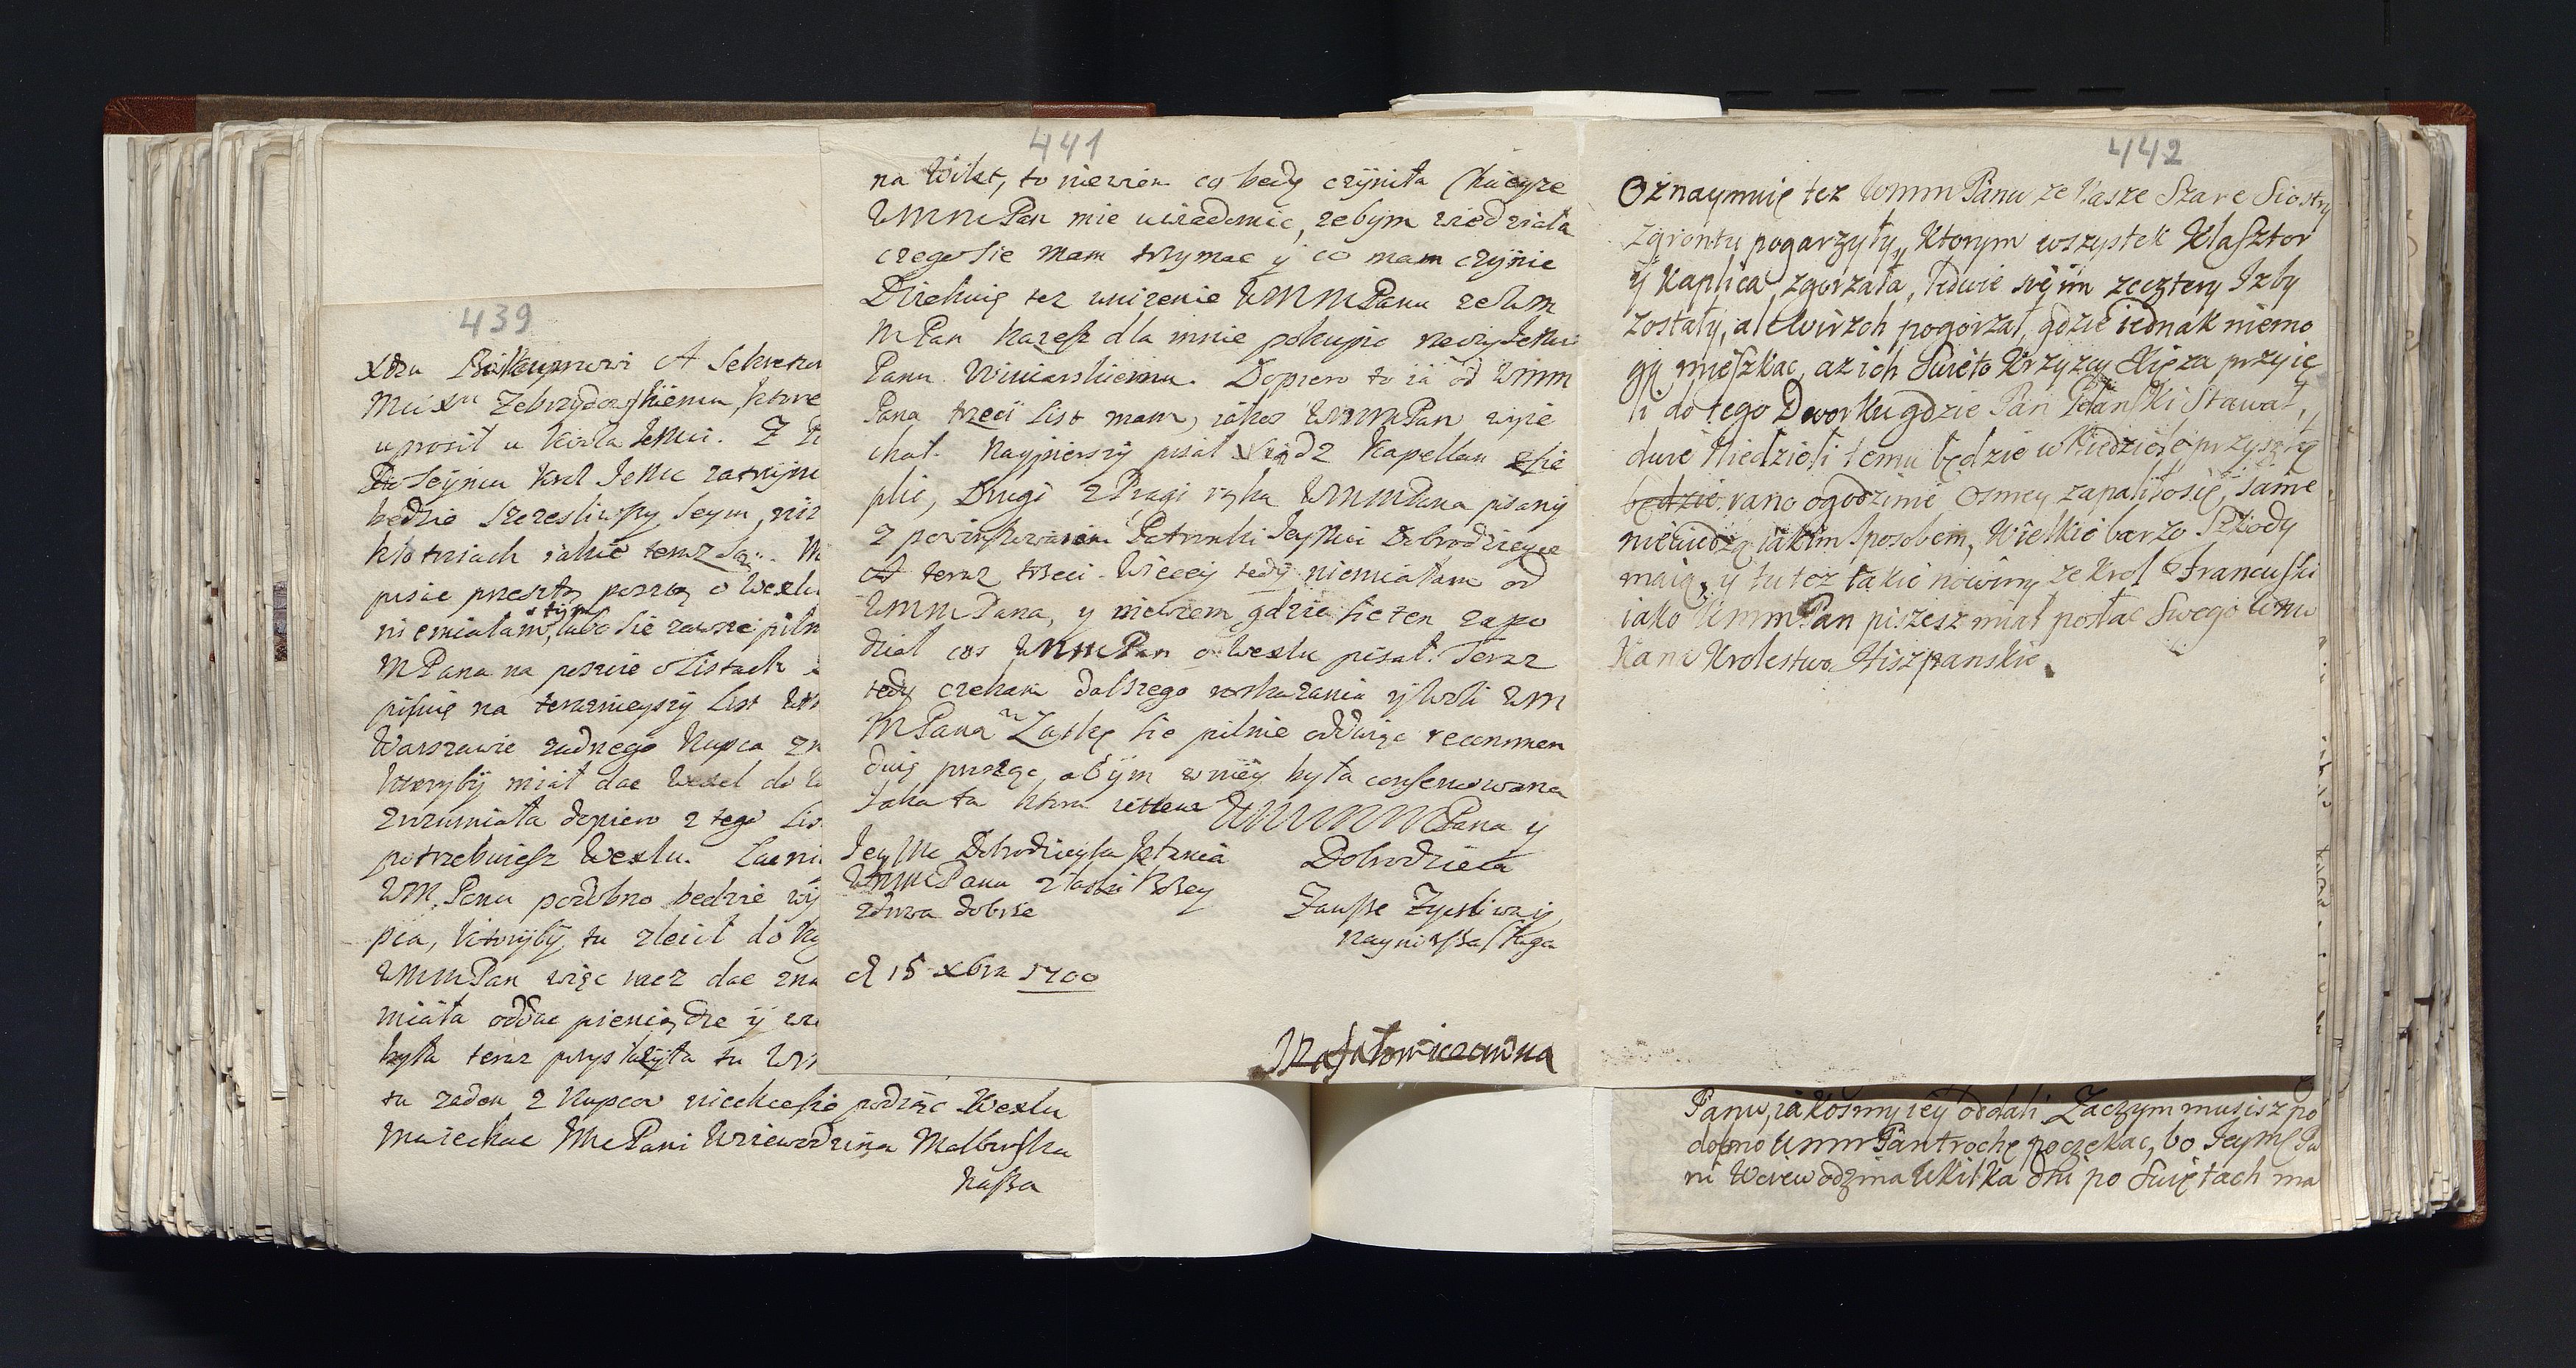 439
xdzu Biskupowi A Sekretar
Mci Xu Zebrzydowskiemu, ktore
uprosił u Krola Jemci. Z
Seymu Krol Jemc
będzie szczesliwszy Seym, niz
kłotniach iakie teraz są. M
pisze przeszłą pocztą o Wexlu
niemiałam, s tym lubo sie zawsze piln
MPana na poczcie o Listach
pisuię na teraznieyszy List WM
Warszawie zadnego Kupca zn
ktoryby miał dac Wexel do W
zrozumiała dopiero z tego Lis
potrzebuiesz Wexlu.
WM. Panu podobno będzie
pca, ktoryby tu zlecił do
WMMPan więc racz dac zna
miała oddac pieniądze y
była teraz przysłużyła tu WM
tu zaden z Kupcow niechce się podiąc Wexlu
Ma iechac JMcPani Woiewodzina Malborska
Nasza
441
na Wilet, to niewiem co będę czyniła
WMMPan mie uwiadomic, zebym wiedziała
czego sie mam trzymac y co mam czynic
Dziekuię tez unizenie WMMPanu ze WM
MPan kazesz dla mnie pokupic rzeczy Jemci
Panu Winiarskiemu. Dopiero to ia od WMM
Pana trzeci List mam, iakos WMMPan wyie
chał. Naypierszy pisał Xiądz Kapellan z Cie
plic, Drugi z Pragi ręką WMMPana pisany
z powinszowaniem Patronki Jeymci Dobrodzieyce
A teraz trzeci. Więcey tedy niemiałam od
WMMPana, y niewiem gdzie sie ten zapo
dział cos WMMPan o Wexlu pisał. Teraz
tedy czekam dalszego roskazania y Woli WM
MPana Łasce sie pilnie oddaiąc recommen
duię prosząc, abym w niey była conserwowana
Jako ta ktora iestem WMMMMPana y
Dobrodzieia
Zawsze Zyczliwa y
Nayniższa Sługa
Jey Mc Dobrodzieyka Jetmcia
WMMPana z łaski Bozey
zdrowa dobrze
d 15 Xbra 1700
Rafałowiczowna
442
Oznaymuię tez WmmPanu ze Nasze Szare Siostry
Zgrontu pogorzyły, Ktorym wszystek Klasztor
y Kaplica zgorzała, ledwie się im ze cztery Izby
zostały, ale wirzch pogorzał, gdzie iednak niemo
gą mieszkac, az ich Swięto Krzyzcy Xięza przyię
li do tego Dworku gdzie Pan Polanski Stawał,
dwie Niedzieli temu będzie w Niedzielę przyszłą
będzie rano ogodzinie Osmey zapaliłosię, same
niewiedzą iakim sposobem, Wielkie barzo Szkody
maią, y tu tez takie nowiny ze Krol Francuski
iako WmmPan piszesz miał posłac Swego Wnu
Ka na Krolestwo Hiszpanskie.
Panu, iakosmy iey oddali Zaczym musisz po
dobno WmmPan trochę poczekac, bo Jeymc Pa
ni Woiewodzina w Kilka dni po Swiętach ma